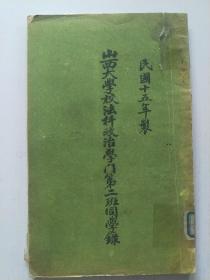 民國十五年製
山西大學校法科政治學門第二班同學錄